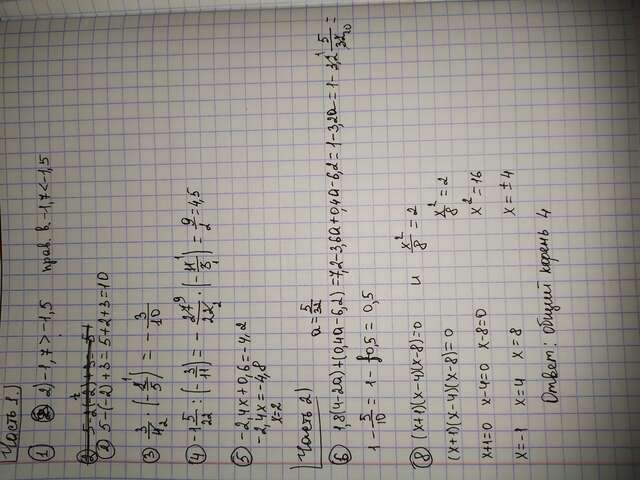 Часть 1.
① 2) -1,7 > -1,5 прав. в. -1,7 < -1,5
② 5-(-2)+3 = 5+2+3 = 10
③ 3/4 · (-2/5) = -3/10
④ -1 5/22 : (-3/11) = -27/22 · (-11/3) = 9/2 = 4,5
⑤ -2,4x+0,6 = -4,2
-2,4x = -4,8
x = 2
Часть 2) a = 5/32
⑥ 1,8(4-2a)+(0,4a-6,2) = 7,2-3,6a+0,4a-6,2 = 1-3,2a = 1-3,2 · 5/32 =
1 - 5/10 = 1 - 0,5 = 0,5
⑧ (x+1)(x-4)(x-8)=0 и x²/8 = 2
(x+1)(x-4)(x-8)=0 x²/8 = 2
x+1=0 x-4=0 x-8=0 x² = 16
x=-1 x=4 x=8 x = ±4
Ответ: общий корень 4